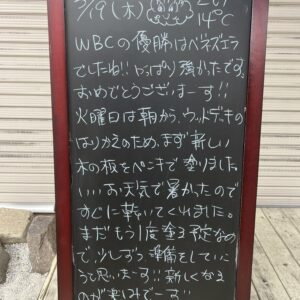 3/19(木)
14℃
WBCの優勝はベネズエラ
でしたね!!やっぱり強かったです。
おめでとうございまーす!!
火曜日は朝から、ウッドデキの
はりかえのため、まず新しい
木の板をペンキで塗りました。
いいお天気で暑かったので
すぐに乾いてくれました。
まだもう1度塗る予定なの
で、少しずつ準備をしていこ
うと思いまーす!!新しくなる
のが楽しみでーす!!